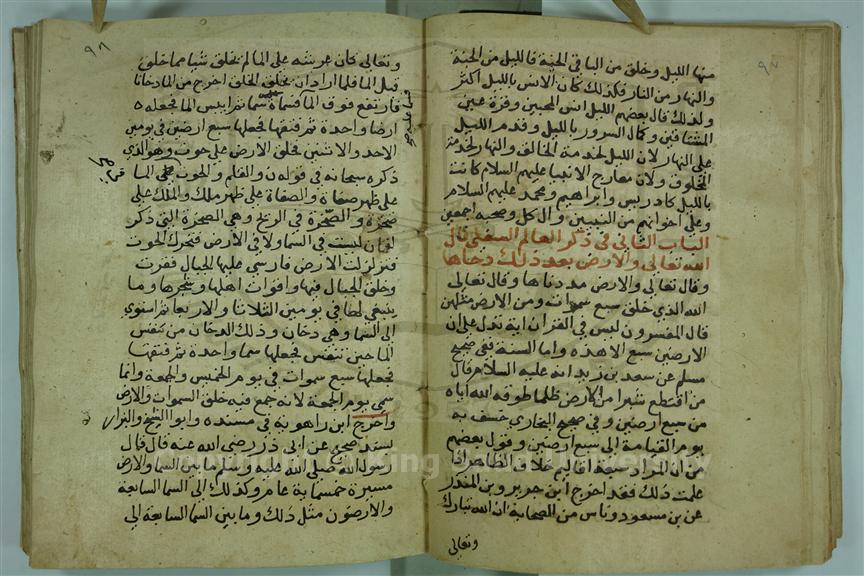 ٩٧
منها الليل وخلق من الباقي الجنة فالليل من الجنة
والنهار من النار فلذلك كان الانس بالليل اكثر
ولذلك قال بعضهم الليل انس المحبين وقرة عين
المشتاقين وكمال السرور بالليل وقدم الليل
على النهار لان الليل لخدمة الخالق والنهار لخدمة
المخلوق ولان معاريج الانبيا عليهم السلام كانت
بالليل كادريس وابراهيم ومحمد عليهم السلام
وعلى اخوانهم من النبيين وال كل وصحبه اجمعين
الباب الثاني في ذكر العالم السفلي قال
الله تعالى والارض بعد ذلك دحاها
وقال تعالى والارض مددناها وقال تعالى
الله الذي خلق سبع سموات ومن الارض مثلهن
قال المفسرون ليس في القران اية تدل على ان
الارضين سبع الا هذه واما السنة ففي صحيح
مسلم عن سعد بن زيد انه عليه السلام قال
من اقتطع شبرا من الارض ظلما طوقه الله اياه
من سبع ارضين وفي صحيح البخاري خسف به
يوم القيامة الى سبع ارضين وقول بعضهم
من ان المراد سبعة اقاليم خلاف الظاهر اذا
علمت ذلك فقد اخرج ابن جرير وبن المنذر
عن بن مسعود وناس من الصحابة ان الله تبارك
وتعالى
٩٨
وتعالى كان عرشه على الما لم يخلق شيا مما خلق
قبل الما فلما اراد ان يخلق الخلق اخرج من الما دخانا
فارتفع فوق الما فسماه سما ثم ايبس الما فجعله
ارضا واحدة ثم فتقها فجعلها سبع ارضين في يومين
الاحد والاثنين فخلق الارض على حوت وهو الذي
ذكره سبحانه في قوله ن والقلم والحوت على الما
على ظهر صفاة والصفاة على ظهر ملك والملك على
صخرة والصخرة في الريح وهي الصخرة التي ذكر
لقمان ليست في السما ولا في الارض فتحرك الحوت
فتزلزلت الارض فارسى عليها الجبال فقرت
وخلق الجبال فيها واقوات اهلها وشجرها وما
ينبغي لها في يومين الثلاثا والاربعا ثم استوى
الى السما وهي دخان وذلك الدخان من تنفس
الما حين تنفس فجعلها سما واحدة ثم فتقها
فجعلها سبع سموات في يوم الخميس والجمعة وانما
سمي يوم الجمعة لانه جمع فيه خلق السموات والارض
واخرج ابن راهويه في مسنده وابو الشيخ والبزار
بسند صحيح عن ابي ذر رضي الله عنه قال قال
رسول الله صلى الله عليه وسلم ما بين السما والارض
مسيرة خمسماية عام وكذلك الى السما السابعة
والارضون مثل ذلك وما بين السما السابعة الى
King